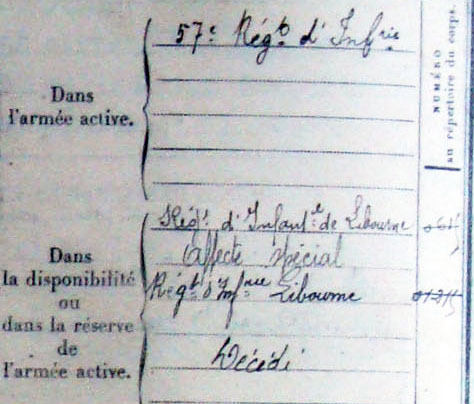 57e Régt d'Infrie
NUMÉRO
au répertoire du corps.
Dans
l'armée active.
Régt d'Infantie de Libourne
Affecté spécial
Régt d'Infrie Libourne
Dans
la disponibilité
ou
dans la réserve
de
l'armée active.
Décédé